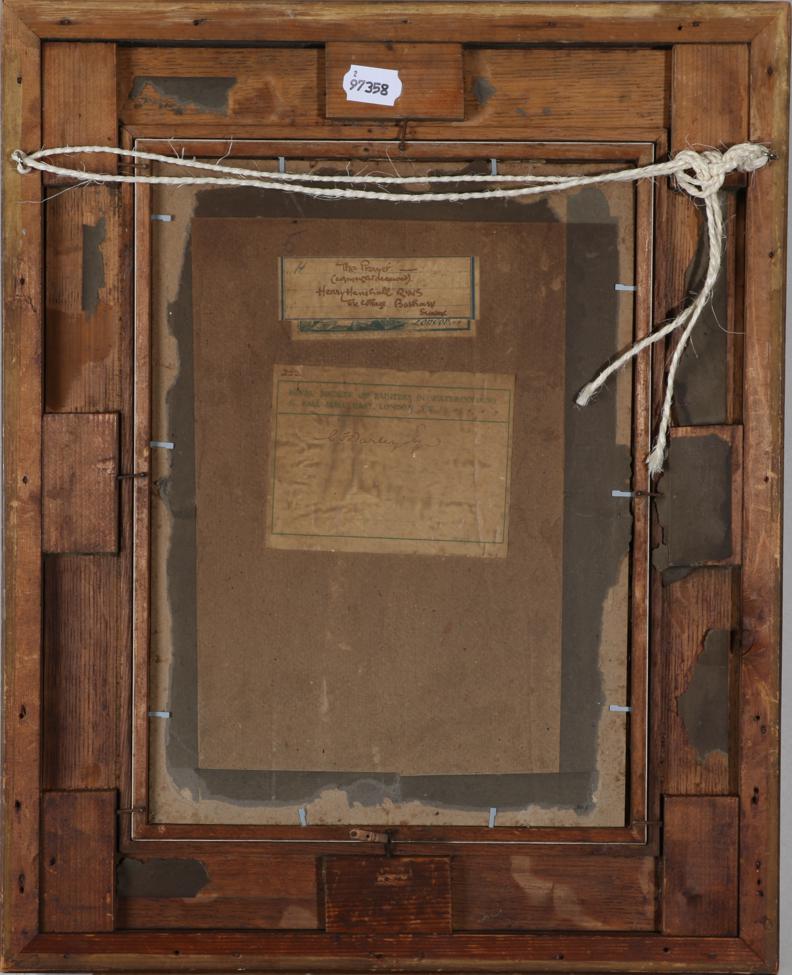 2
97358
H
The Prayer —
Henry Henshall RWS
The Cottage Bosham
Sussex
LONDON
222
ROYAL SOCIETY OF PAINTERS IN WATERCOLOURS
5, PALL MALL EAST, LONDON, S.W.